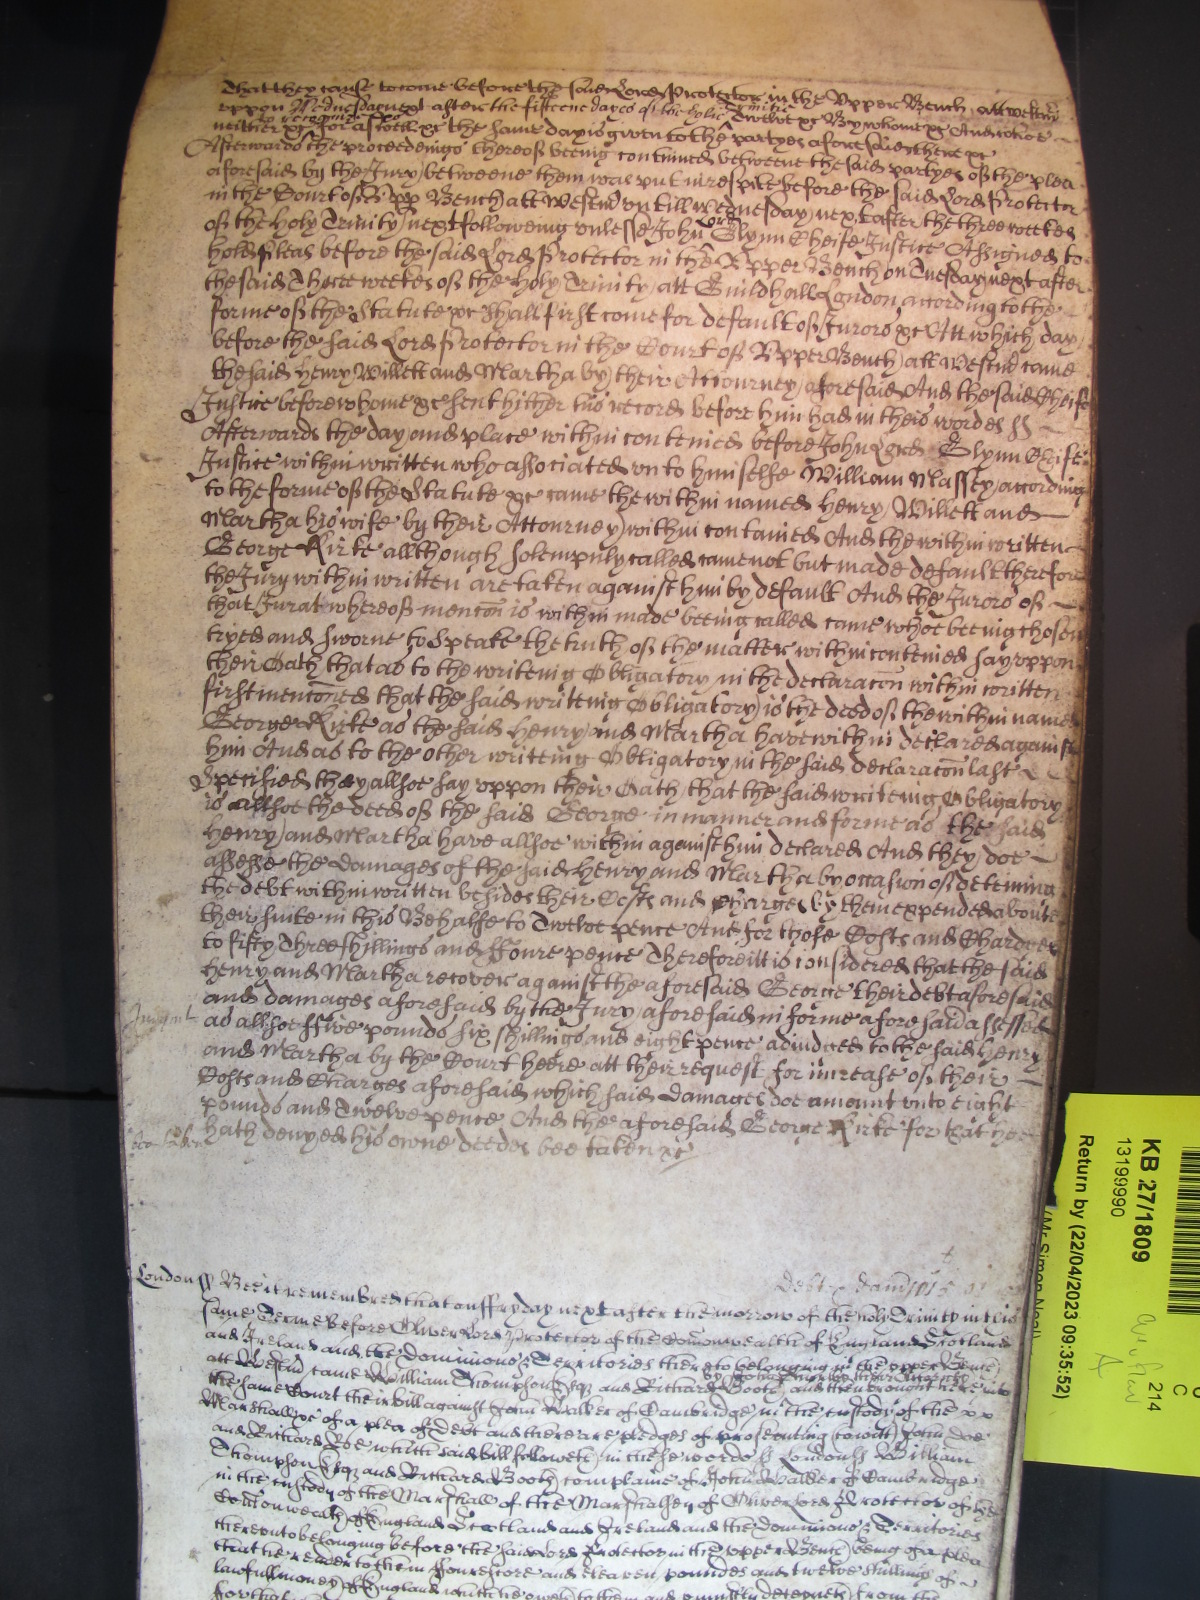 that they cause to come before the said Lord Protector in the Upper Bench att Westmr
uppon Wednesday next after the fifteene dayes of the holie Trinitie Twelve &c By whome &c And whoe
neither &c to recognize &c for aswell &c the same day is given to the partyes aforesaid there &c
Afterwards the proceedings thereof beeing continued betweene the said partyes of the plea
aforesaid by the Jury betweene them was put in respite before the said Lord Protector
in the Court of Upp Bench att Westmr untill Wednesday next after the three weekes
of the Holy Trinity next following unlesse John Lord Glynn Cheife Justice Assigned to
hold Pleas before the said Lord Protector in the Upper Bench on Tuesday next after
the said Three weekes of the Holy Trinity att Guildhall London according to the
forme of the Statute &c shall first come for default of Jurors &c Att which day
before the said Lord Protector in the Court of Upper Bench att Westmr came
the said Henry Willett and Martha by their Attourney aforesaid And the said Cheife
Justice before whome &c sent hither his record before him had in theis wordes ss
Afterwards the day and place within conteined before John Lord Glynn Cheife
Justice within written who associated unto himselfe William Massey according
to the forme of the Statute &c came the within named Henry Willett and
Martha his wife by their Attourney within contained And the within written
George Kirke allthough solempnly called came not but made default therefore
the Jury within written are taken against him by default And the Jurors of
that Jurat whereof mencon is within made beeing called came whoe beeing chosen
tryed and sworne to speake the truth of the matter within conteined say uppon
their Oath that as to the writeing Obligatory in the declaracon within written
first menconed that the said writeing Obligatory is the deed of the within named
George Kirke as the said Henry and Martha have within declared against
him And as to the other writeing Obligatory in the said declaracon last
Specified they allsoe say uppon their Oath that the said writeing Obligatory
is allsoe the deed of the said George in manner and forme as the said
Henry and Martha have allsoe within against him declared And they doe
assesse the damages of the said Henry and Martha by occasion of deteining
the debt within written besides their Costs and Charges by them expended aboute
their suite in this Behalfe to Twelve pence And for those Costs and Chardges
to fifty Three shillings and Foure pence Therefore itt is considered that the said
Henry and Martha recover against the aforesaid George their debt aforesaid
and damages aforesaid by the Jury aforesaid in forme aforesaid assessed
Judgmt
as allsoe Five pounds six shillings and eight pence adiudged to the said Henry
and Martha by the Court heere att their request for increase of their
Costs and Charges aforesaid which said damages doe amount unto eight
pounds and Twelve pence And the aforesaid George Kirke for that hee
hath denyed his owne deedes bee taken &c
London ss Bee it remembred that on Fryday next after the morrow of the holy Trinity in this
same Terme before Oliver Lord Protector of the Comonwealth of England Scotland
and Ireland and the Dominions & Territories thereto belonging in the upper Bench
att Westmr came William Thompson Esqr and Richard Booth by John their Attorney and then brought here into
the same Court their bill against John Waller of Cambridge in the custody of the
Marshall &c of a plea of Debt and there are pledges of prosecuting (to witt) John Doe
and Richard Roe which said bill followeth in these words ss London ss William
Thompson Esqr and Richard Booth complaine of John Waller of Cambridge
in the custody of the Marshall of the Marshalsey of Oliver Lord Protector of the
Comonwealth of England Scotland and Ireland and the Dominions & Territories
thereunto belonging before the said Lord Protector in the upper Bench being of a plea
that he render to them Fourescore and eleaven pounds and twelve shillings of
lawfull money of England which he oweth to them and uniustly deteyneth from them
for that
KB 27/1809
13199990
Return by (22/04/2023 09:35:52)
(Mr Simon Neal)
214
C
A